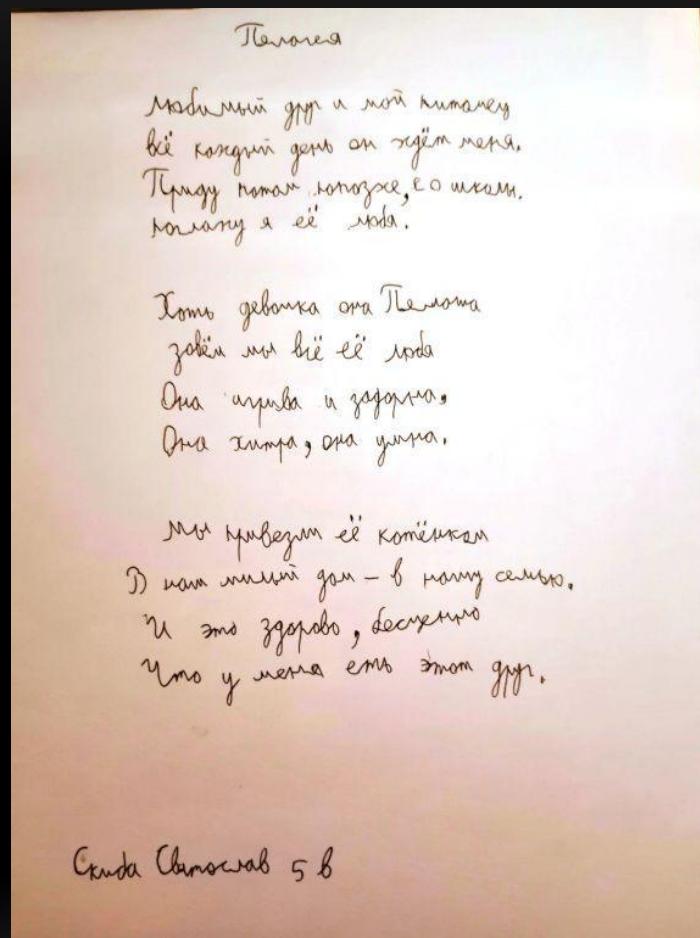 Пелагея
любимый друг и мой питомец
всё каждый день он ждём меня.
Приду потом попозже, со школы.
поглажу я её любя.
Хоть девочка она Пелаша
зовём мы всё её любя
Она игрива и задорна,
Она хитра, она умна.
мы привезли её котёнком
В наш милый дом – в нашу семью.
И это здорово, бесценно
Что у меня есть этот друг.
Скиба Святослав 5 в